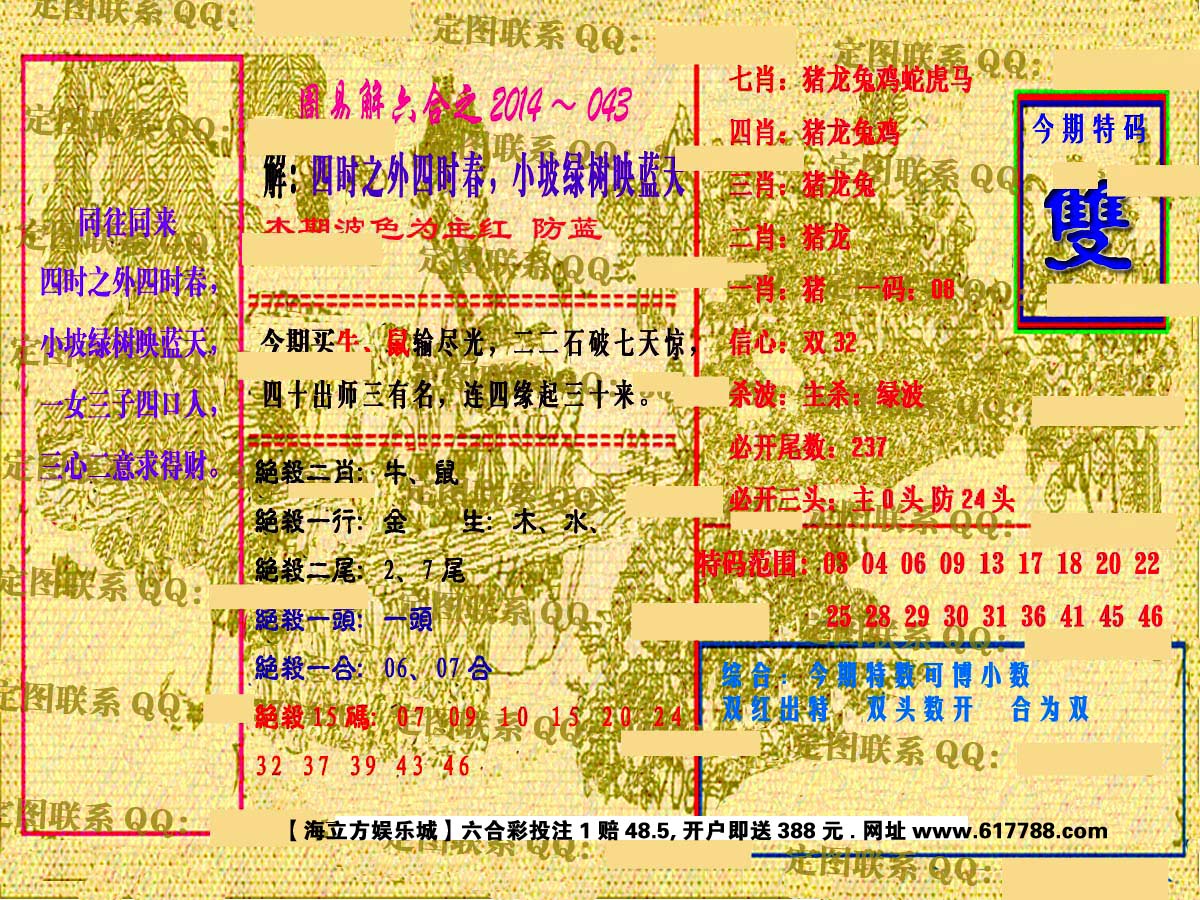 定图联系 QQ:
定图联系 QQ:
定图联系 QQ:
同往同来
四时之外四时春，
小坡绿树映蓝天，
一女三子四口人，
三心二意求得财。
周易解六合之 2014～043
解：四时之外四时春，小坡绿树映蓝天
本期波色为主红 防蓝
今期买牛、鼠输尽光，二二石破七天惊，
四十出师三有名，连四缘起三十来。
絕殺二肖：牛、鼠
絕殺一行：金 生：木、水、
絕殺二尾：2、7 尾
絕殺一頭：一頭
絕殺一合：06、07 合
絕殺 15 碼：07 09 10 15 20 24
32 37 39 43 46
七肖：猪龙兔鸡蛇虎马
四肖：猪龙兔鸡
三肖：猪龙兔
二肖：猪龙
一肖：猪 一码：08
信心：双 32
杀波：主杀：绿波
必开尾数：237
必开三头：主 0 头 防 24 头
今期特码
雙
特码范围：03 04 06 09 13 17 18 20 22
25 28 29 30 31 36 41 45 46
综合：今期特数可博小数
双红出特 双头数开 合为双
【海立方娱乐城】六合彩投注 1 赔 48.5, 开户即送 388 元 . 网址 www.617788.com